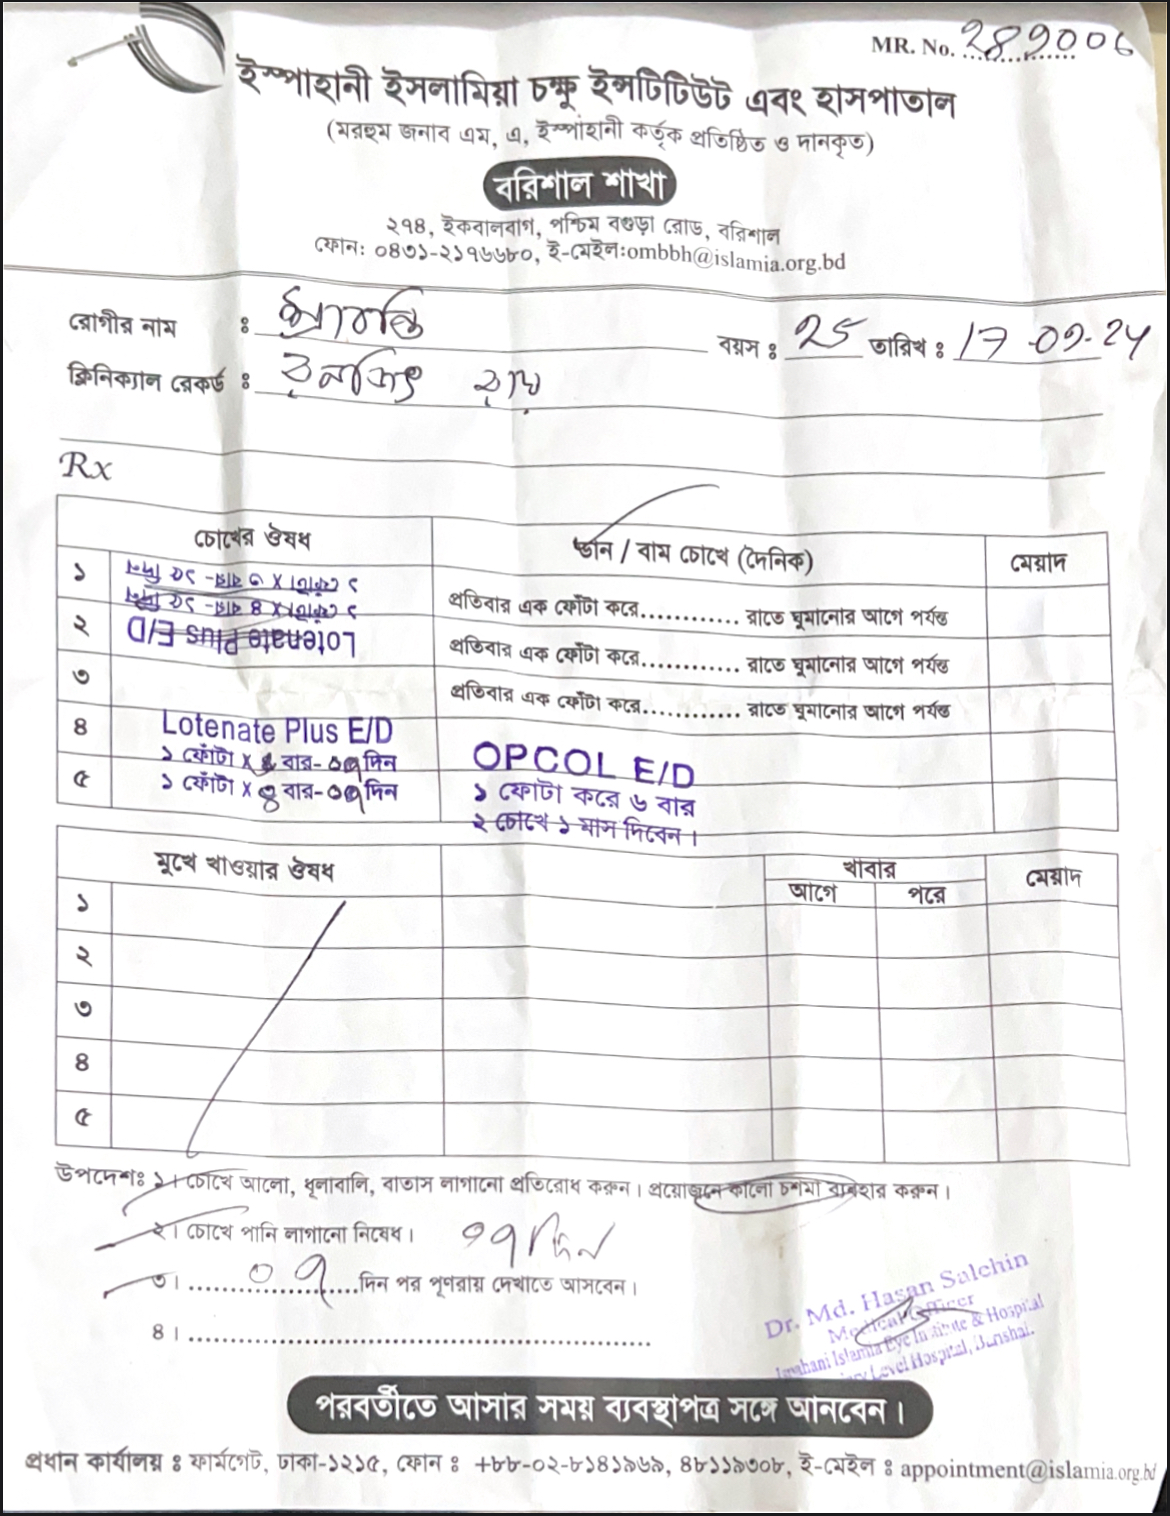 MR. No. 289006
ইস্পাহানী ইসলামিয়া চক্ষু ইন্সটিটিউট এবং হাসপাতাল
(মরহুম জনাব এম, এ, ইস্পাহানী কর্তৃক প্রতিষ্ঠিত ও দানকৃত)
বরিশাল শাখা
২৭৪, ইকবালবাগ, পশ্চিম বগুড়া রোড, বরিশাল
ফোন: ০৪৩১-২১৭৬৬৮০, ই-মেইল:ombbh@islamia.org.bd
রোগীর নাম : শ্রাবন্তি বয়স : 25 তারিখ : 17-09-24
ক্লিনিক্যাল রেকর্ড : রনজিৎ রায়
Rx
চোখের ঔষধ ডান / বাম চোখে (দৈনিক) মেয়াদ
১ ১ ফোঁটা X ৩ বার- ১৫ দিন প্রতিবার এক ফোঁটা করে............ রাতে ঘুমানোর আগে পর্যন্ত
১ ফোঁটা X ৪ বার- ১৫ দিন
২ Lotenate Plus E/D প্রতিবার এক ফোঁটা করে............ রাতে ঘুমানোর আগে পর্যন্ত
৩ প্রতিবার এক ফোঁটা করে............ রাতে ঘুমানোর আগে পর্যন্ত
৪ Lotenate Plus E/D OPCOL E/D
১ ফোঁটা X বার- ০৭ দিন
৫ ১ ফোঁটা X ৪ বার- ০৭ দিন ১ ফোটা করে ৬ বার
২ চোখে ১ মাস দিবেন।
মুখে খাওয়ার ঔষধ খাবার মেয়াদ
আগে পরে
১
২
৩
৪
৫
উপদেশঃ ১। চোখে আলো, ধূলাবালি, বাতাস লাগানো প্রতিরোধ করুন। প্রয়োজনে কালো চশমা ব্যবহার করুন।
২। চোখে পানি লাগানো নিষেধ। ০৭ দিন
৩। ......০৭......দিন পর পূণরায় দেখাতে আসবেন।
৪। ............................................................
Dr. Md. Hasan Salehin
Medical Officer
Ispahani Islamia Eye Institute & Hospital
Level Hospital, Barishal.
পরবর্তীতে আসার সময় ব্যবস্থাপত্র সঙ্গে আনবেন।
প্রধান কার্যালয় : ফার্মগেট, ঢাকা-১২১৫, ফোন : +৮৮-০২-৮১৪১৯৬৯, ৪৮১১৯৩০৮, ই-মেইল : appointment@islamia.org.bd